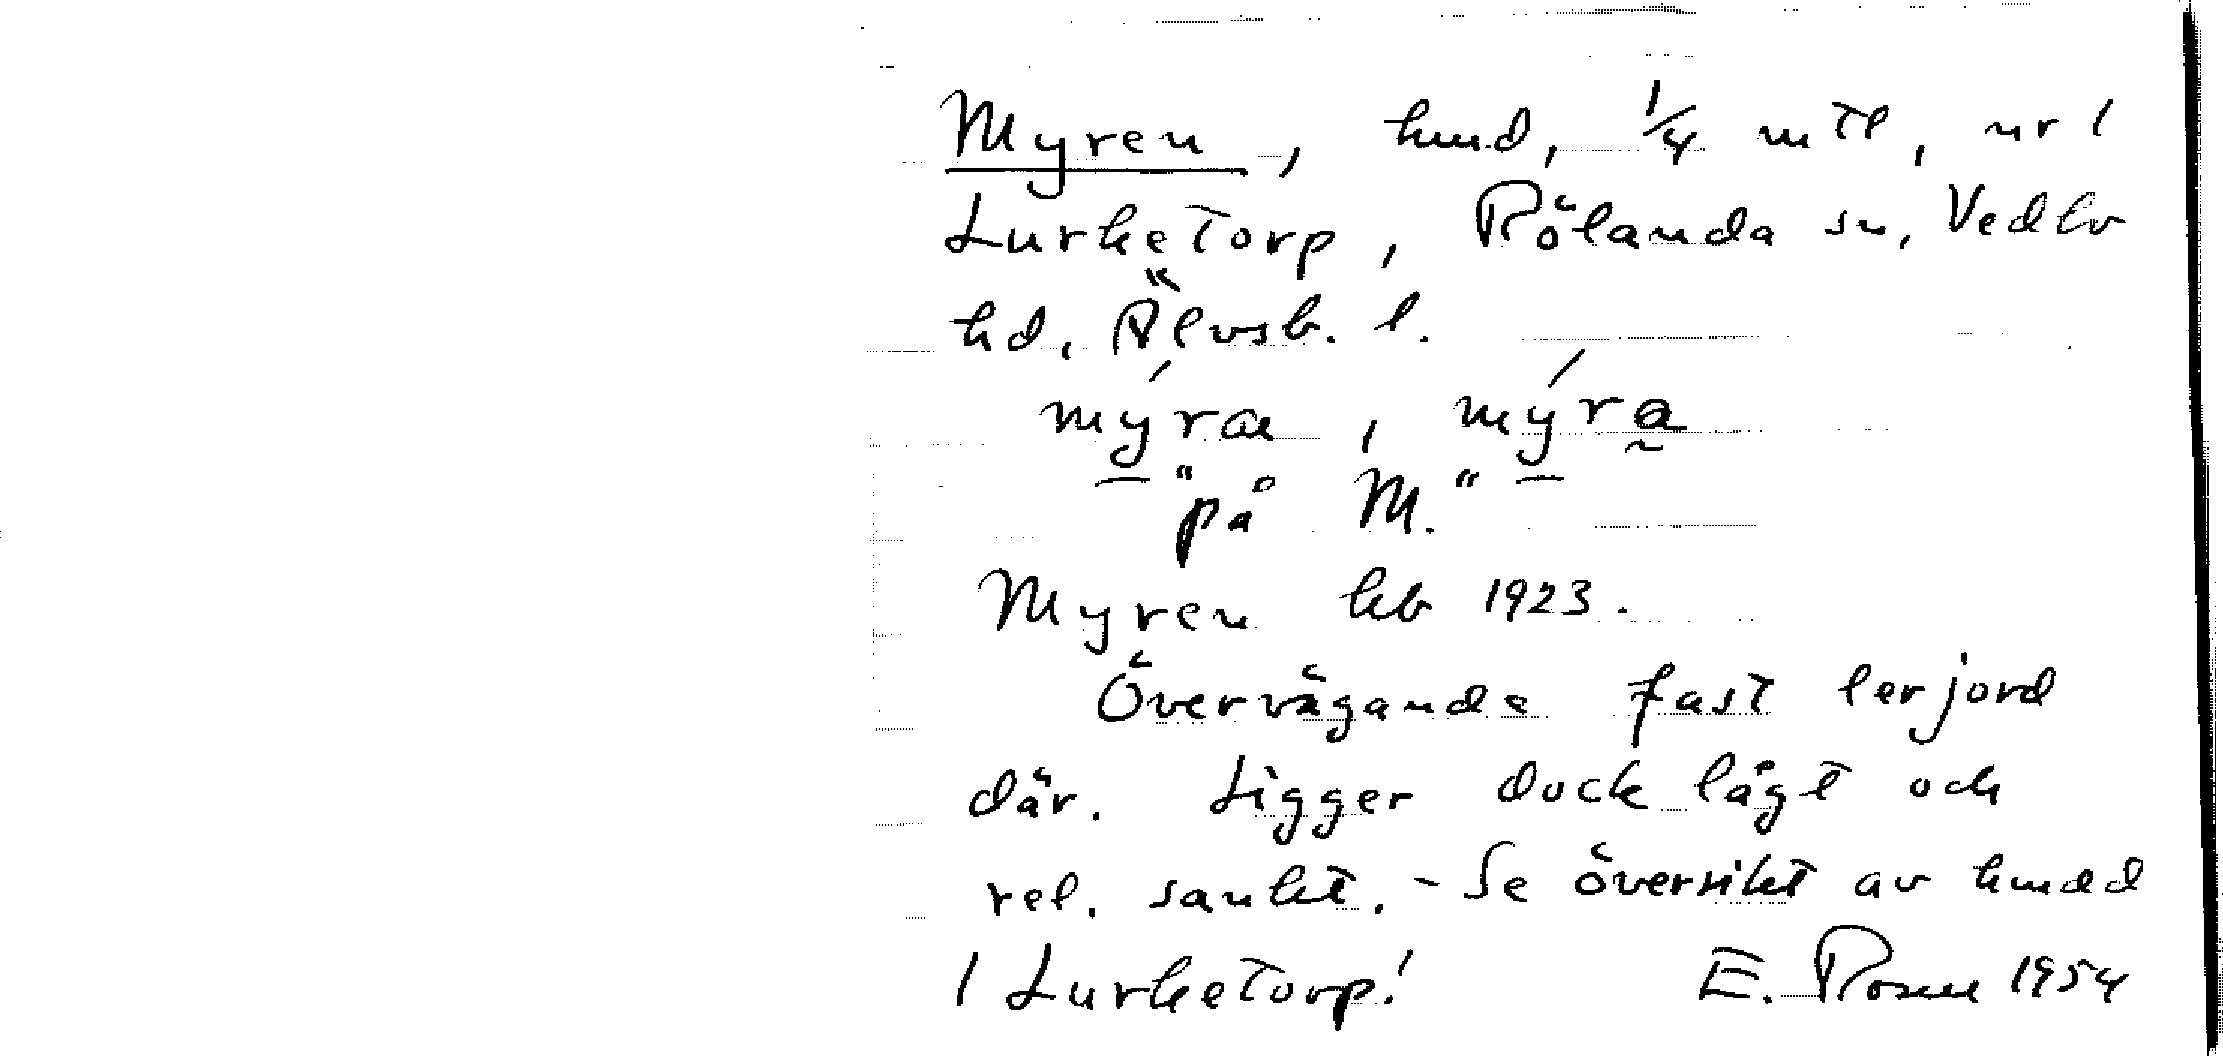 Myren, hmd, 1/4 mtl, nr 1
Lurketorp, Rölanda sn, Vedbo
hd, Älvsb. l.
mýræ, mýra
"på M."
Myren kb 1923.
Övervägande fast lerjord
där. Ligger dock lågt och
rel. sankt. - Se översikt av hmdd
1 Lurketorp! E. Rosell 1954